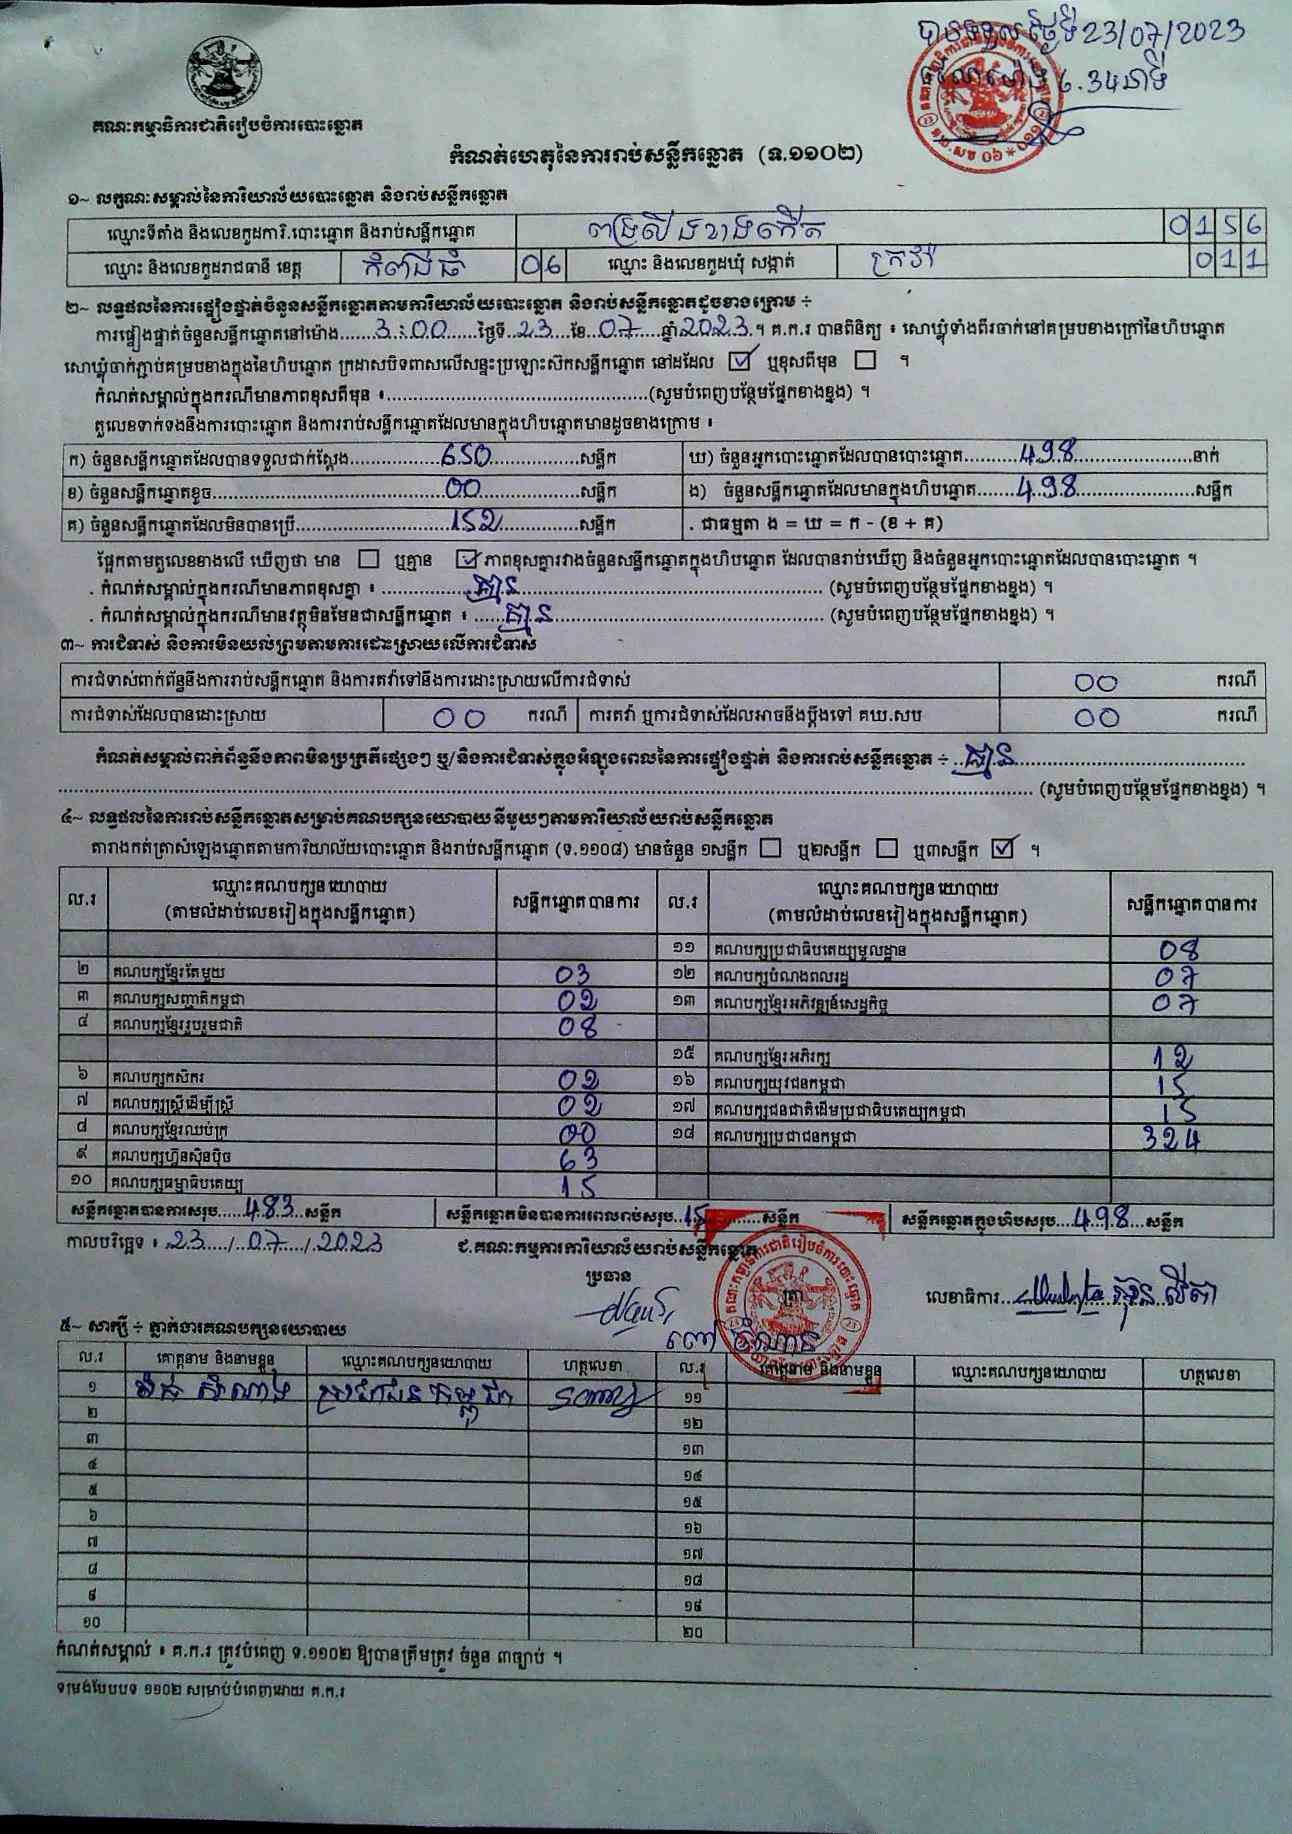 បានទទួល ថ្ងៃទី 23/07/2023
ម៉ោង 6.34នាទី
គណៈកម្មាធិការជាតិរៀបចំការបោះឆ្នោត
កំណត់ហេតុនៃការរាប់សន្លឹកឆ្នោត (ទ.១១០២)
១~ លក្ខណៈសម្គាល់នៃការិយាល័យបោះឆ្នោត និងរាប់សន្លឹកឆ្នោត
ឈ្មោះទីតាំង និងលេខកូដការិ.បោះឆ្នោត និងរាប់សន្លឹកឆ្នោត 0156
ឈ្មោះ និងលេខកូដរាជធានី ខេត្ត កំពង់ធំ 06 ឈ្មោះ និងលេខកូដឃុំ សង្កាត់ ក្រវ៉ា 011
២~ លទ្ធផលនៃការផ្ទៀងផ្ទាត់ចំនួនសន្លឹកឆ្នោតតាមការិយាល័យបោះឆ្នោត និងរាប់សន្លឹកឆ្នោតដូចខាងក្រោម ÷
ការផ្ទៀងផ្ទាត់ចំនួនសន្លឹកឆ្នោតនៅម៉ោង 3:00 ថ្ងៃទី 23 ខែ 07 ឆ្នាំ 2023 ។ គ.ក.រ បានពិនិត្យ ៖ សោឃ្លុំទាំងពីរចាក់នៅគម្របខាងក្រៅនៃហិបឆ្នោត
សោឃ្លុំចាក់ភ្ជាប់គម្របខាងក្នុងនៃហិបឆ្នោត ក្រដាសបិទពាសលើសន្ទះប្រឡោះស៊កសន្លឹកឆ្នោត នៅដដែល ☑ ឬខុសពីមុន ☐ ។
កំណត់សម្គាល់ក្នុងករណីមានភាពខុសពីមុន ៖ (សូមបំពេញបន្ថែមផ្នែកខាងខ្នង) ។
តួលេខទាក់ទងនឹងការបោះឆ្នោត និងការរាប់សន្លឹកឆ្នោតដែលមានក្នុងហិបឆ្នោតមានដូចខាងក្រោម ៖
ក) ចំនួនសន្លឹកឆ្នោតដែលបានទទួលជាក់ស្តែង 650 សន្លឹក ឃ) ចំនួនអ្នកបោះឆ្នោតដែលបានបោះឆ្នោត 498 នាក់
ខ) ចំនួនសន្លឹកឆ្នោតខូច 00 សន្លឹក ង) ចំនួនសន្លឹកឆ្នោតដែលមានក្នុងហិបឆ្នោត 498 សន្លឹក
គ) ចំនួនសន្លឹកឆ្នោតដែលមិនបានប្រើ 152 សន្លឹក . ជាធម្មតា ង = ឃ = ក - (ខ + គ)
ផ្អែកតាមតួលេខខាងលើ ឃើញថា មាន ☐ ឬគ្មាន ☑ ភាពខុសគ្នារវាងចំនួនសន្លឹកឆ្នោតក្នុងហិបឆ្នោត ដែលបានរាប់ឃើញ និងចំនួនអ្នកបោះឆ្នោតដែលបានបោះឆ្នោត ។
. កំណត់សម្គាល់ក្នុងករណីមានភាពខុសគ្នា ៖ គ្មាន (សូមបំពេញបន្ថែមផ្នែកខាងខ្នង) ។
. កំណត់សម្គាល់ក្នុងករណីមានវត្ថុមិនមែនជាសន្លឹកឆ្នោត ៖ គ្មាន (សូមបំពេញបន្ថែមផ្នែកខាងខ្នង) ។
៣~ ការជំទាស់ និងការមិនយល់ព្រមតាមការដោះស្រាយលើការជំទាស់
ការជំទាស់ពាក់ព័ន្ធនឹងការរាប់សន្លឹកឆ្នោត និងការតវ៉ាទៅនឹងការដោះស្រាយលើការជំទាស់ 00 ករណី
ការជំទាស់ដែលបានដោះស្រាយ 00 ករណី ការតវ៉ា ឬការជំទាស់ដែលអាចនឹងប្តឹងទៅ គឃ.សប 00 ករណី
កំណត់សម្គាល់ពាក់ព័ន្ធនឹងភាពមិនប្រក្រតីផ្សេងៗ ឬ/និងការជំទាស់ក្នុងអំឡុងពេលនៃការផ្ទៀងផ្ទាត់ និងការរាប់សន្លឹកឆ្នោត ÷ គ្មាន
(សូមបំពេញបន្ថែមផ្នែកខាងខ្នង) ។
៤~ លទ្ធផលនៃការរាប់សន្លឹកឆ្នោតសម្រាប់គណបក្សនយោបាយនីមួយៗតាមការិយាល័យរាប់សន្លឹកឆ្នោត
តារាងកត់ត្រាសំឡេងឆ្នោតតាមការិយាល័យបោះឆ្នោត និងរាប់សន្លឹកឆ្នោត (ទ.១១០៨) មានចំនួន ១សន្លឹក ☐ ឬ២សន្លឹក ☐ ឬ៣សន្លឹក ☑ ។
ល.រ ឈ្មោះគណបក្សនយោបាយ (តាមលំដាប់លេខរៀងក្នុងសន្លឹកឆ្នោត) សន្លឹកឆ្នោតបានការ ល.រ ឈ្មោះគណបក្សនយោបាយ (តាមលំដាប់លេខរៀងក្នុងសន្លឹកឆ្នោត) សន្លឹកឆ្នោតបានការ
១១ គណបក្សប្រជាធិបតេយ្យមូលដ្ឋាន 08
២ គណបក្សខ្មែរតែមួយ 03 ១២ គណបក្សបំណងពលរដ្ឋ 07
៣ គណបក្សសញ្ជាតិកម្ពុជា 02 ១៣ គណបក្សខ្មែរអភិវឌ្ឍន៍សេដ្ឋកិច្ច 07
៤ គណបក្សខ្មែររួបរួមជាតិ 08
១៥ គណបក្សខ្មែរអភិរក្ស 12
៦ គណបក្សកសិករ 02 ១៦ គណបក្សយុវជនកម្ពុជា 15
៧ គណបក្សស្ត្រីដើម្បីស្ត្រី 02 ១៧ គណបក្សជនជាតិដើមប្រជាធិបតេយ្យកម្ពុជា 15
៨ គណបក្សខ្មែរឈប់ក្រ 00 ១៨ គណបក្សប្រជាជនកម្ពុជា 324
៩ គណបក្សហ្វ៊ុនស៊ិនប៉ិច 63
១០ គណបក្សធម្មាធិបតេយ្យ 15
សន្លឹកឆ្នោតបានការសរុប 483 សន្លឹក សន្លឹកឆ្នោតមិនបានការពេលរាប់សរុប 15 សន្លឹក សន្លឹកឆ្នោតក្នុងហិបសរុប 498 សន្លឹក
កាលបរិច្ឆេទ ៖ 23/07/2023 ជ.គណៈកម្មការការិយាល័យរាប់សន្លឹកឆ្នោត
ប្រធាន ត្រា លេខាធិការ
៥~ សាក្សី ÷ ភ្នាក់ងារគណបក្សនយោបាយ
ល.រ គោត្តនាម និងនាមខ្លួន ឈ្មោះគណបក្សនយោបាយ ហត្ថលេខា ល.រ គោត្តនាម និងនាមខ្លួន ឈ្មោះគណបក្សនយោបាយ ហត្ថលេខា
១ សំណាង ប្រជាជនកម្ពុជា ១១
២ ១២
៣ ១៣
៤ ១៤
៥ ១៥
៦ ១៦
៧ ១៧
៨ ១៨
៩ ១៩
១០ ២០
កំណត់សម្គាល់ ៖ គ.ក.រ ត្រូវបំពេញ ទ.១១០២ ឱ្យបានត្រឹមត្រូវ ចំនួន ៣ច្បាប់ ។
ទម្រង់បែបបទ ១១០២ សម្រាប់បំពេញដោយ គ.ក.រ